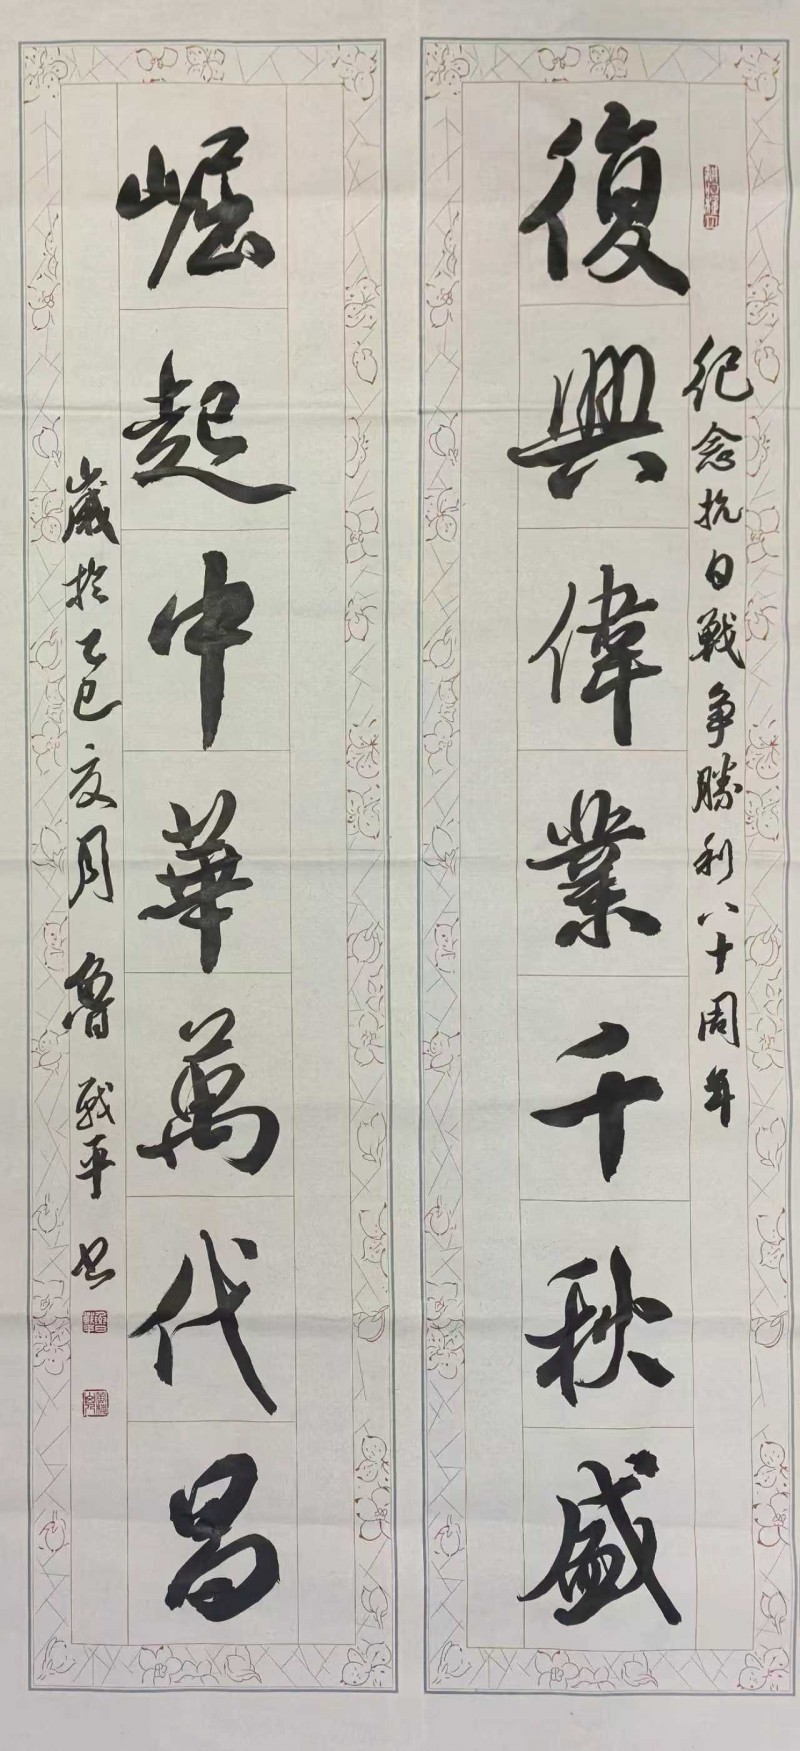 紀念抗日戰争勝利八十周年
復興偉業千秋盛
崛起中華萬代昌
歲於乙巳夏月魯戰平书